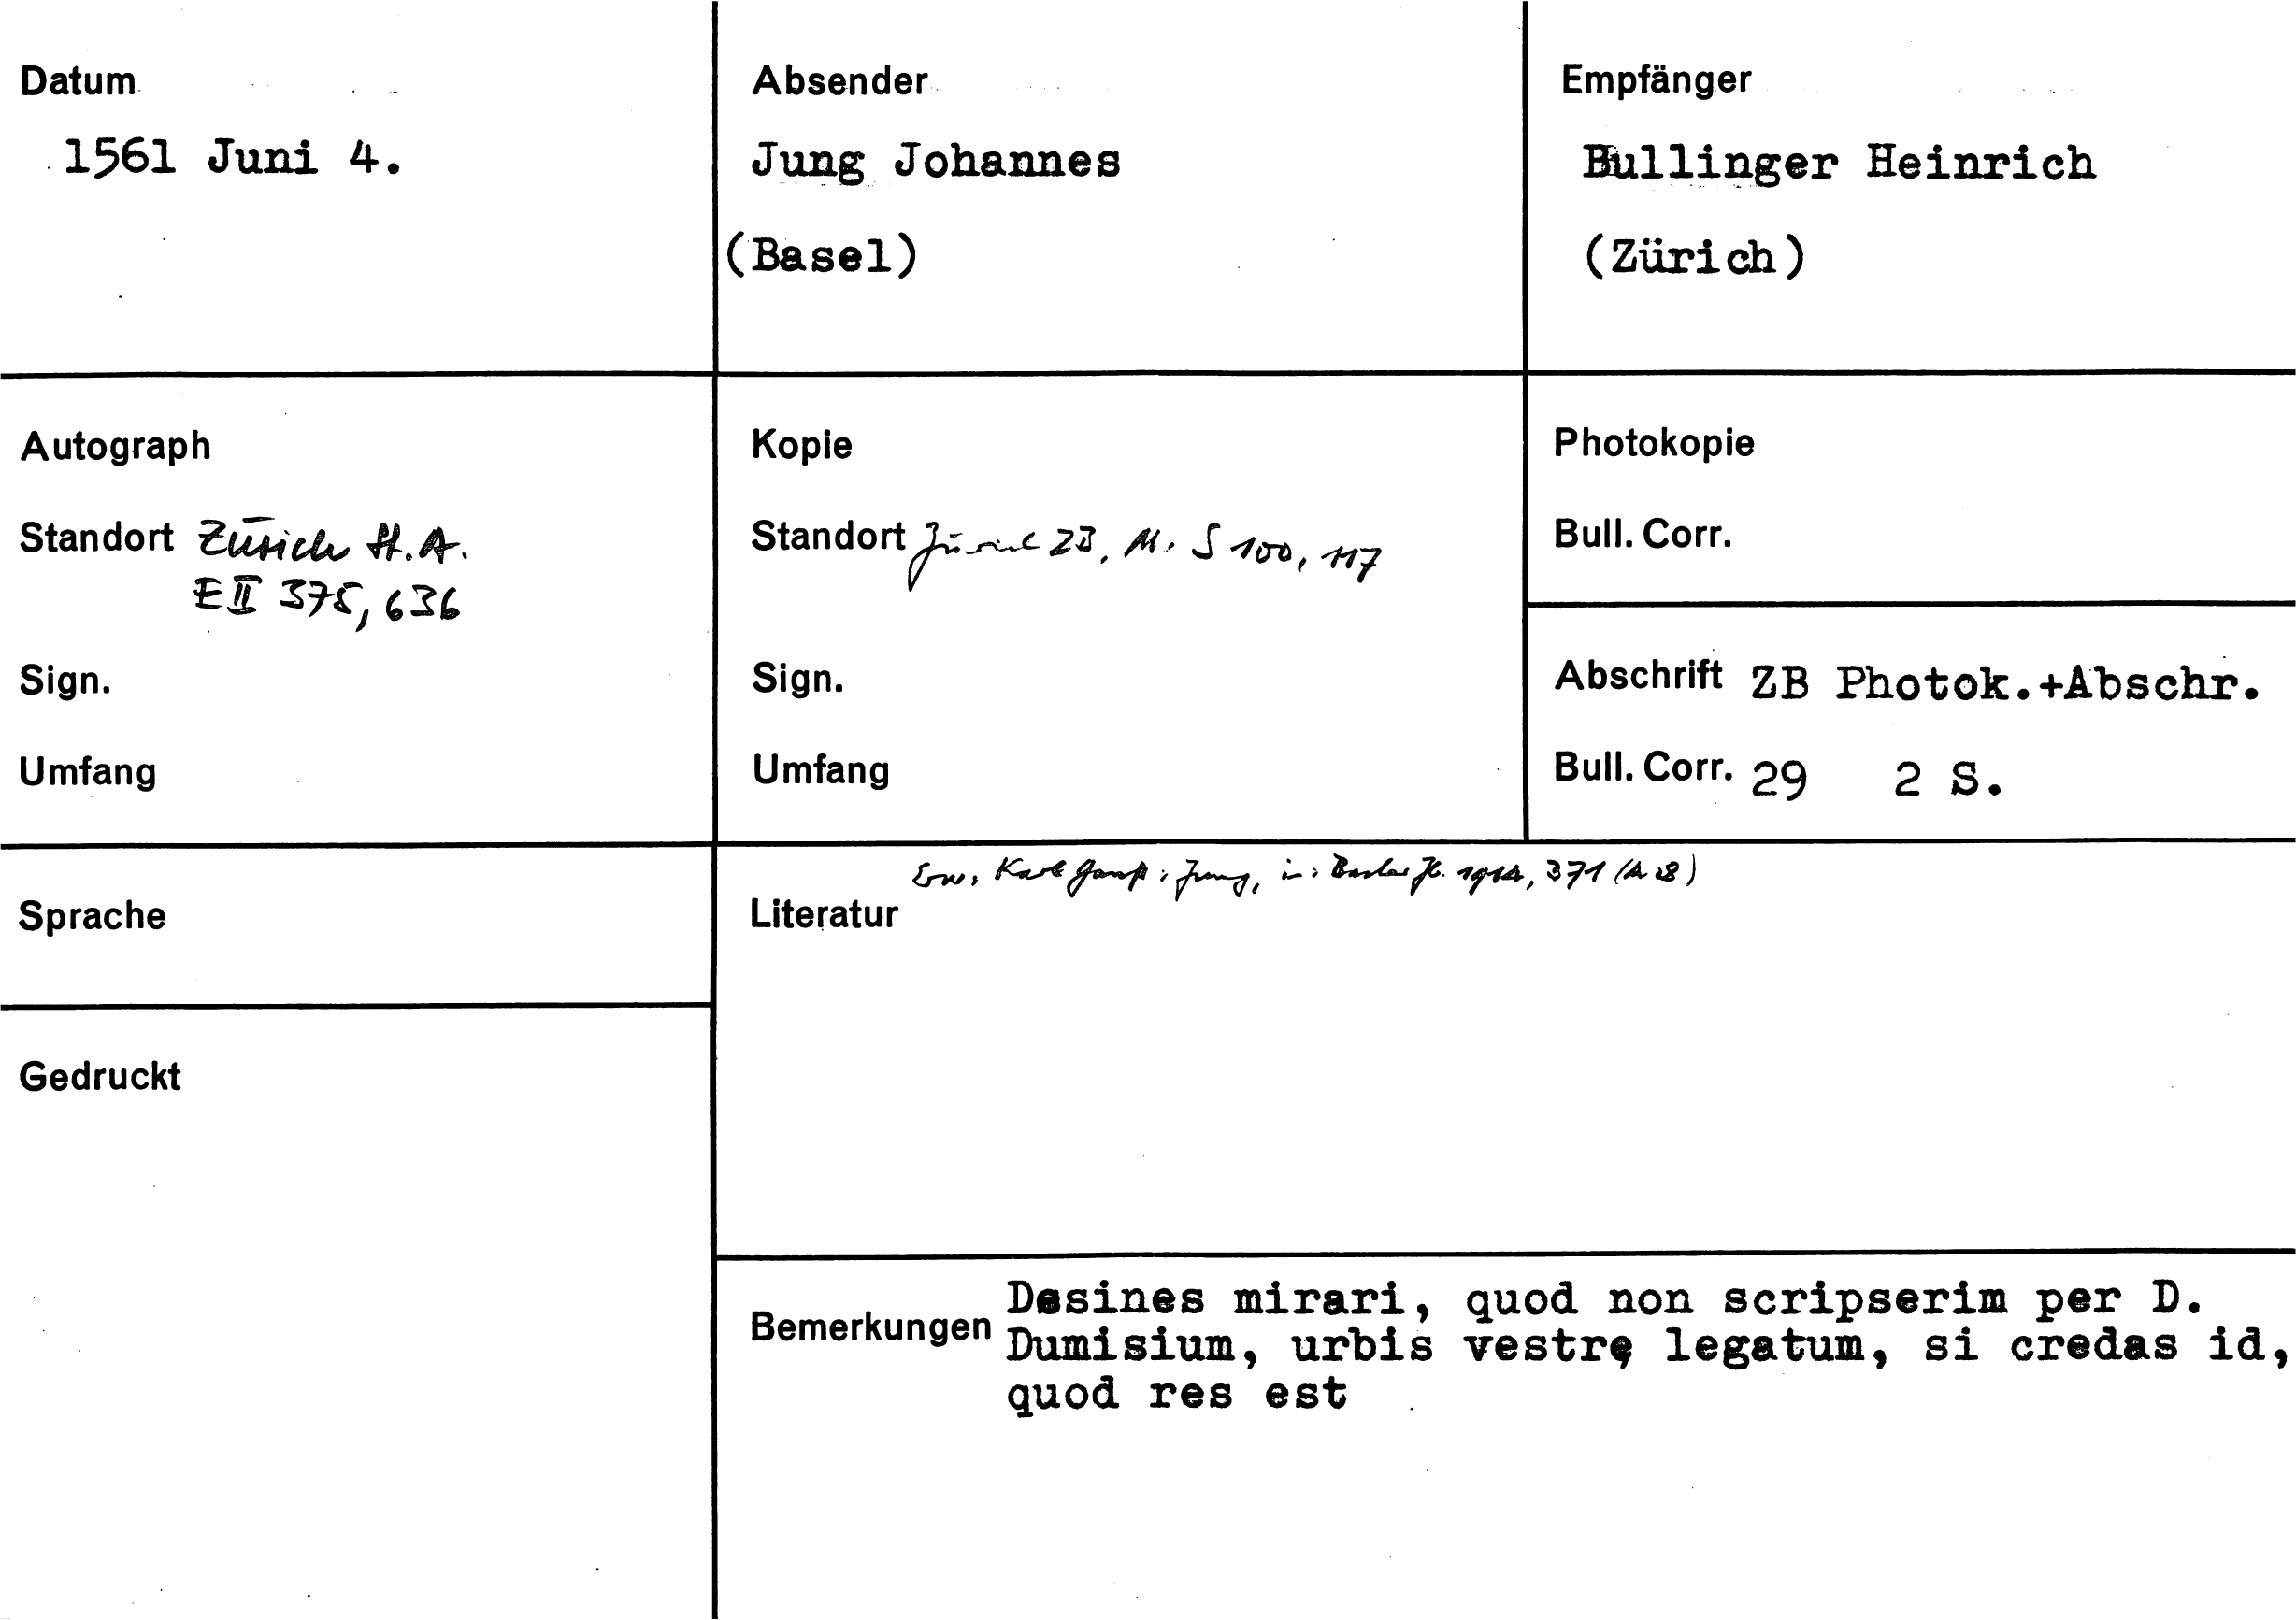 Datum
1561 Juni 4.
Absender
Jung Johannes
(Basel)
Empfänger
Bullinger Heinrich
(Zürich)
Autograph
Standort Zürich St.A.
E II 375, 636
Sign.
Umfang
Kopie
Standort Zürich ZB, Ms S 100, 117
Sign.
Umfang
Photokopie
Bull. Corr.
Abschrift ZB Photok.+Abschr.
Bull. Corr. 29 2 S.
Sprache
Gedruckt
Erw. Karl Gauß: Jung, in: Basler Jb. 1914, 371 (A 28)
Literatur
Bemerkungen
Desines mirari, quod non scripserim per D.
Dumisium, urbis vestrę legatum, si credas id,
quod res est